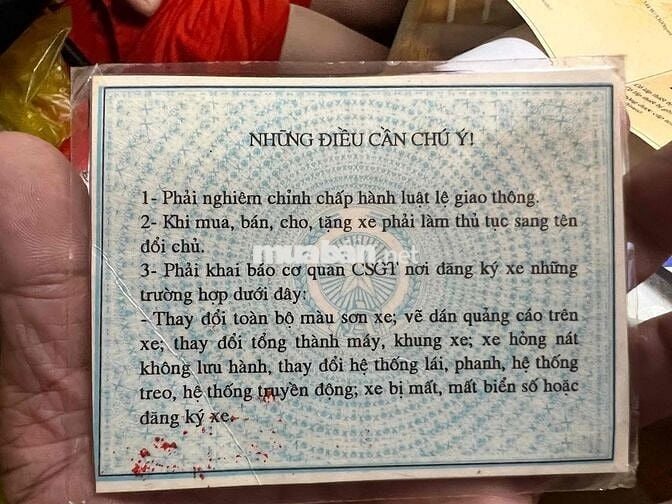 NHỮNG ĐIỀU CẦN CHÚ Ý!
1- Phải nghiêm chỉnh chấp hành luật lệ giao thông.
2- Khi mua, bán, cho, tặng xe phải làm thủ tục sang tên
đổi chủ.
muaban.net
3- Phải khai báo cơ quan CSGT nơi đăng ký xe những
trường hợp dưới đây:
Thay đổi toàn bộ màu sơn xe; vẽ dán quảng cáo trên
xe; thay đổi tổng thành máy, khung xe; xe hỏng nát
không lưu hành, thay đổi hệ thống lái, phanh, hệ thống
treo, hệ thống truyền động; xe bị mất, mất biển số hoặc
đăng ký xe.